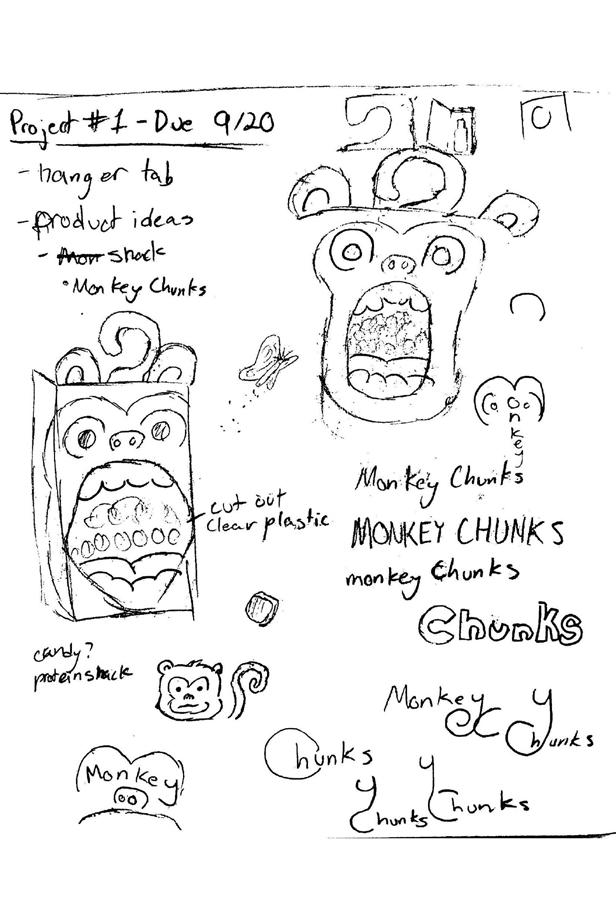 Project #1 - Due 9/20
- hanger tab
- product ideas
- snack
• Monkey Chunks
cut out
clear plastic
candy?
protein snack
Monkey
Monkey
Monkey Chunks
MONKEY CHUNKS
monkey Chunks
Chunks
Monkey
C
y
Chunks
Chunks
y
Chunks
y
Chunks